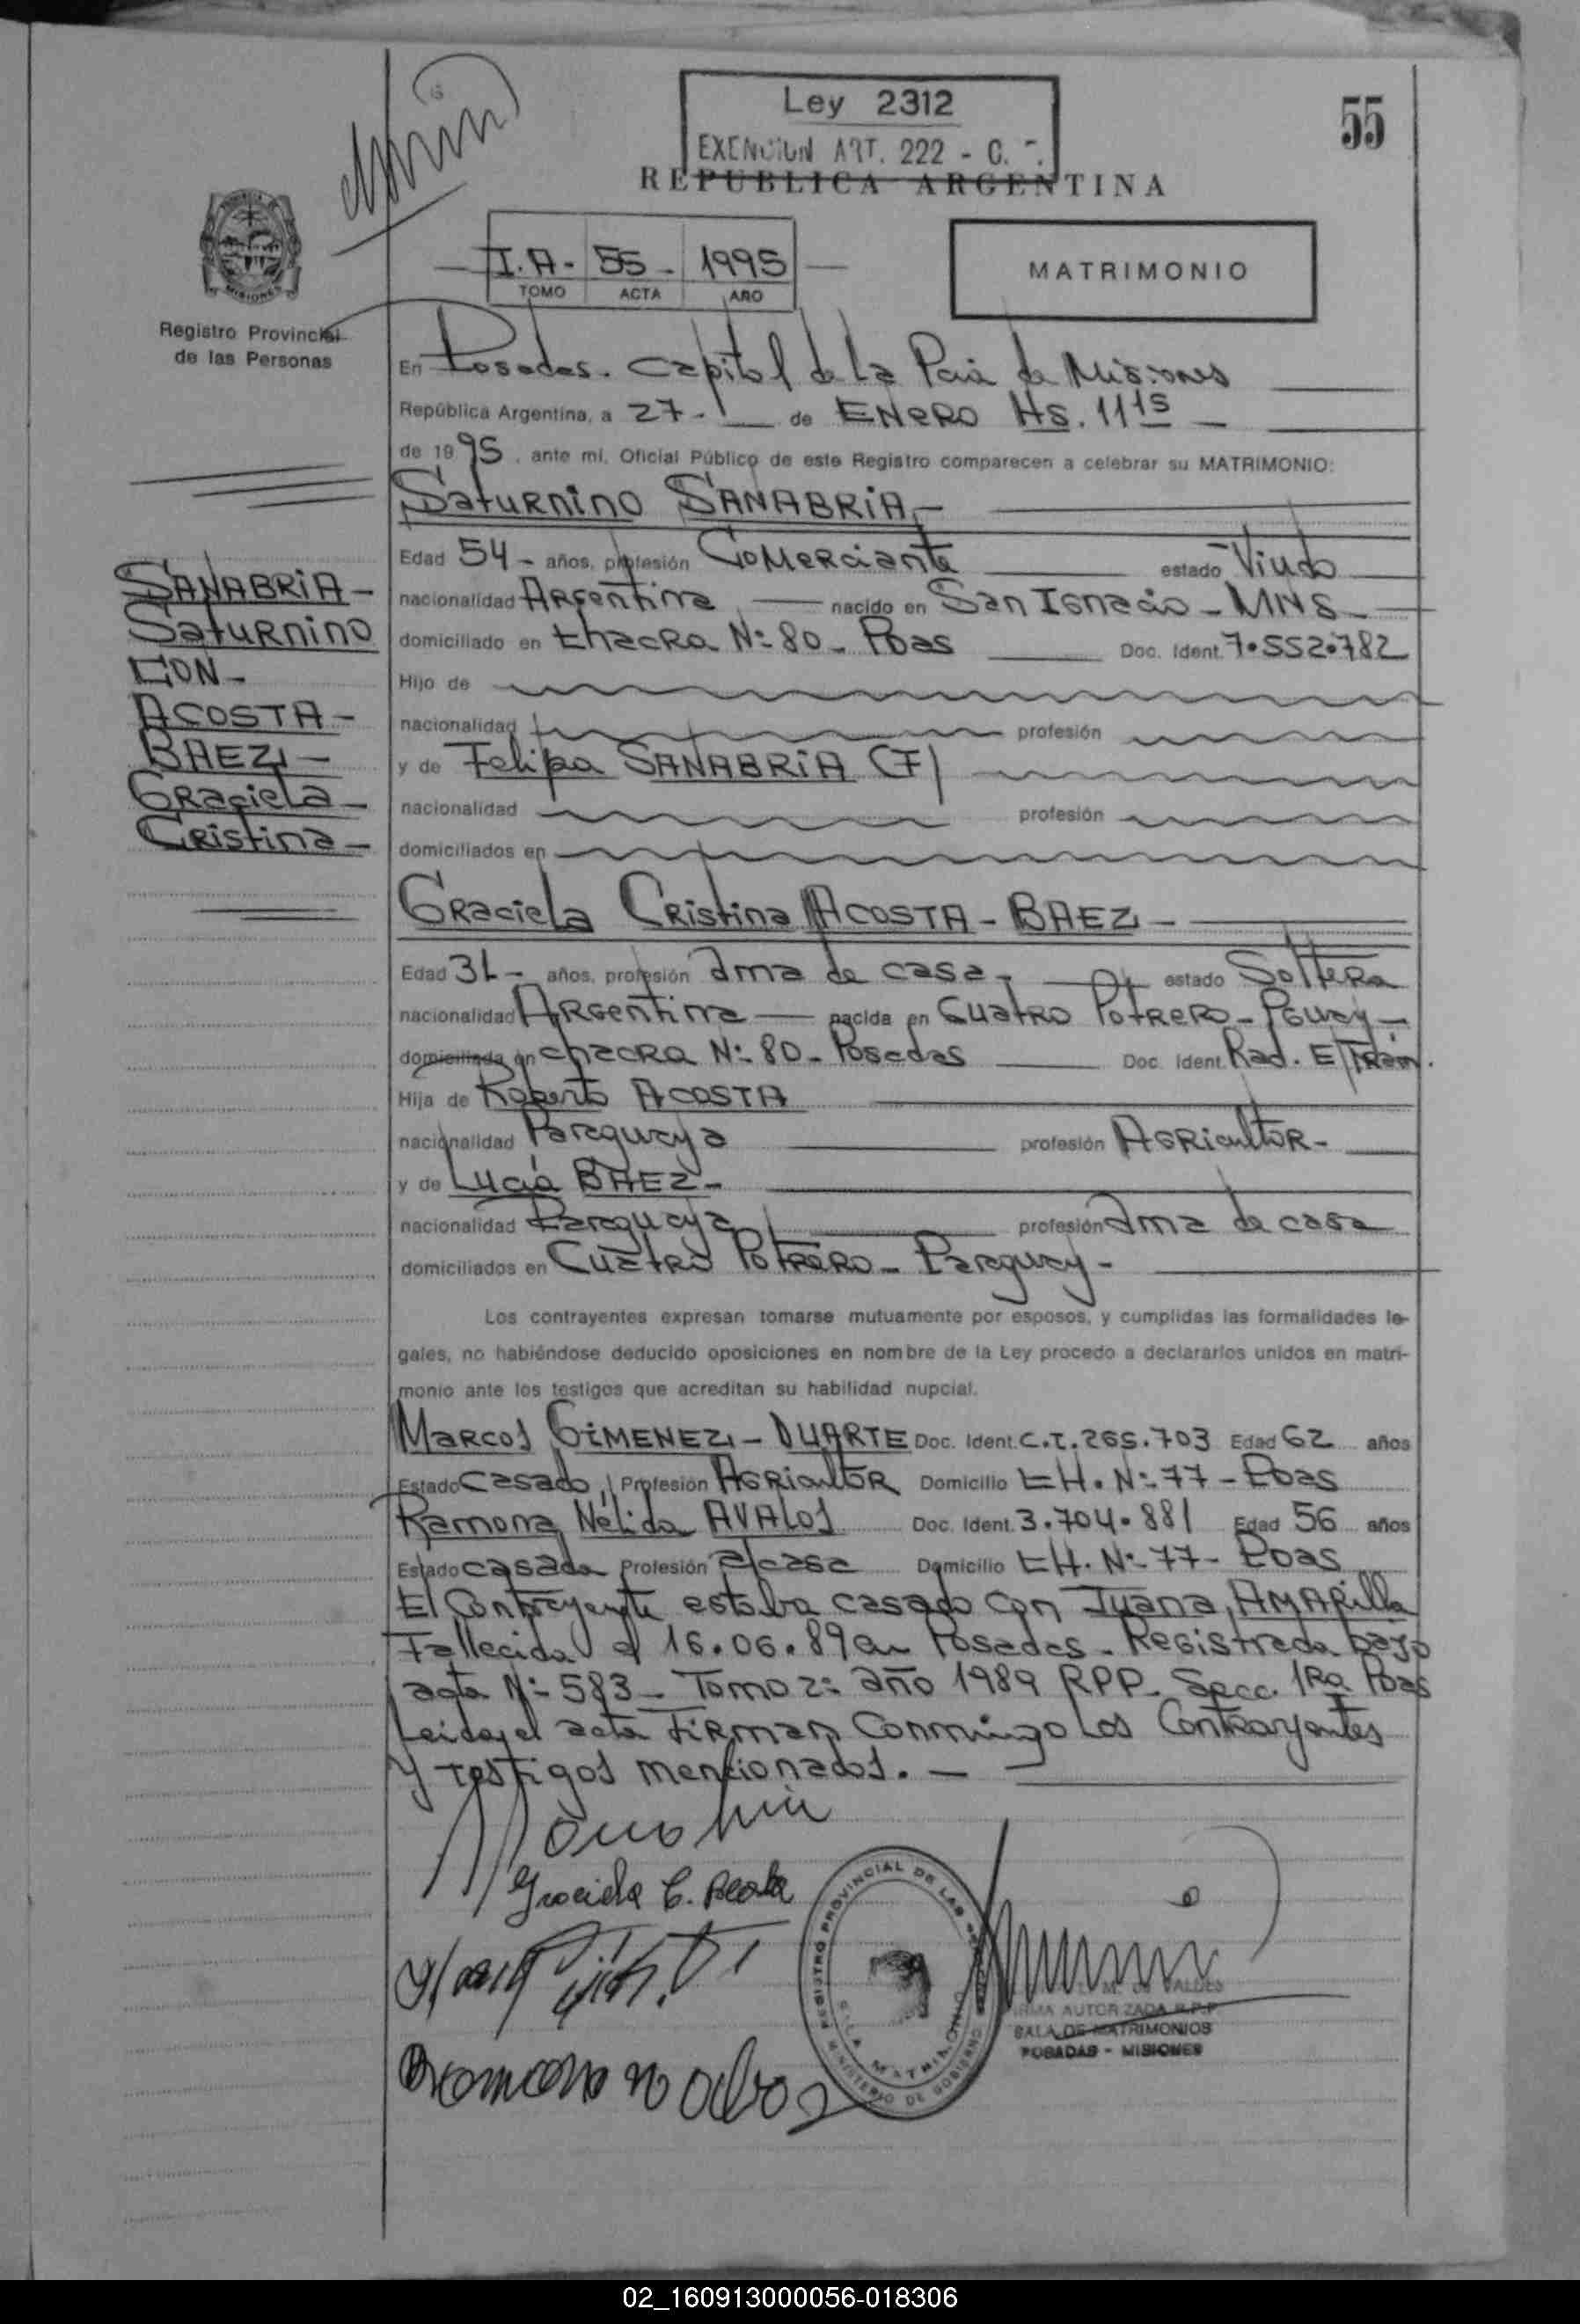 Ley 2312
EXENCION ART. 222 - C.
55
REPUBLICA ARGENTINA
I.A- 55- 1995
TOMO ACTA AÑO
MATRIMONIO
MISIONES
Registro Provincial
de las Personas
En Posadas. Capital de la Pcia de Misiones
República Argentina, a 27- de ENERO Hs. 11 15
de 19 95, ante mí, Oficial Público de este Registro comparecen a celebrar su MATRIMONIO:
Saturnino SANABRIA-
Edad 54- años, profesión Comerciante estado Viudo
nacionalidad Argentina nacido en San Ignacio - MNS-
domiciliado en Chacra N:80- Pdas Doc. Ident. 7.552.782
Hijo de
nacionalidad profesión
y de Felipa SANABRIA (F)
nacionalidad profesión
domiciliados en
SANABRIA-
Saturnino
CON-
ACOSTA-
BAEZ-
Graciela-
Cristina-
Graciela Cristina ACOSTA - BAEZ-
Edad 31- años, profesión ama de casa- estado Soltera
nacionalidad Argentina nacida en Cuatro Potrero - Pguay-
domiciliada en chacra N:80- Posadas Doc. Ident. Rad. E/Trám.
Hija de Roberto ACOSTA
nacionalidad Paraguaya profesión Agricultor-
y de Lucía BAEZ-
nacionalidad Paraguaya profesión ama de casa
domiciliados en Cuatro Potrero - Paraguay-
Los contrayentes expresan tomarse mutuamente por esposos, y cumplidas las formalidades le-
gales, no habiéndose deducido oposiciones en nombre de la Ley procedo a declararlos unidos en matri-
monio ante los testigos que acreditan su habilidad nupcial.
Marcos GIMENEZ - DUARTE Doc. Ident. C.I. 265.703 Edad 62 años
Estado Casado Profesión Agricultor Domicilio CH. N:77- Pdas
Ramona Nélida AVALOS Doc. Ident. 3.704.881 Edad 56 años
Estado casada Profesión a/casa Domicilio CH. N:77- Pdas
El Contrayente estaba casado con Juana AMARILLA
Fallecida el 16.06.89 en Posadas - Registrada bajo
acta N:583- Tomo 2: año 1989 RPP. Secc. 1Ra Pdas
Leida el acta Firman Conmigo Los Contrayentes
y testigos mencionados.-
Graciela C. Acosta
REGISTRO PROVINCIAL DE LAS
SALA MATRIMONIO
MINISTERIO DE GOBIERNO
M. de VALDES
FIRMA AUTORIZADA R.P.P.
SALA DE MATRIMONIOS
POSADAS - MISIONES
02_160913000056-018306